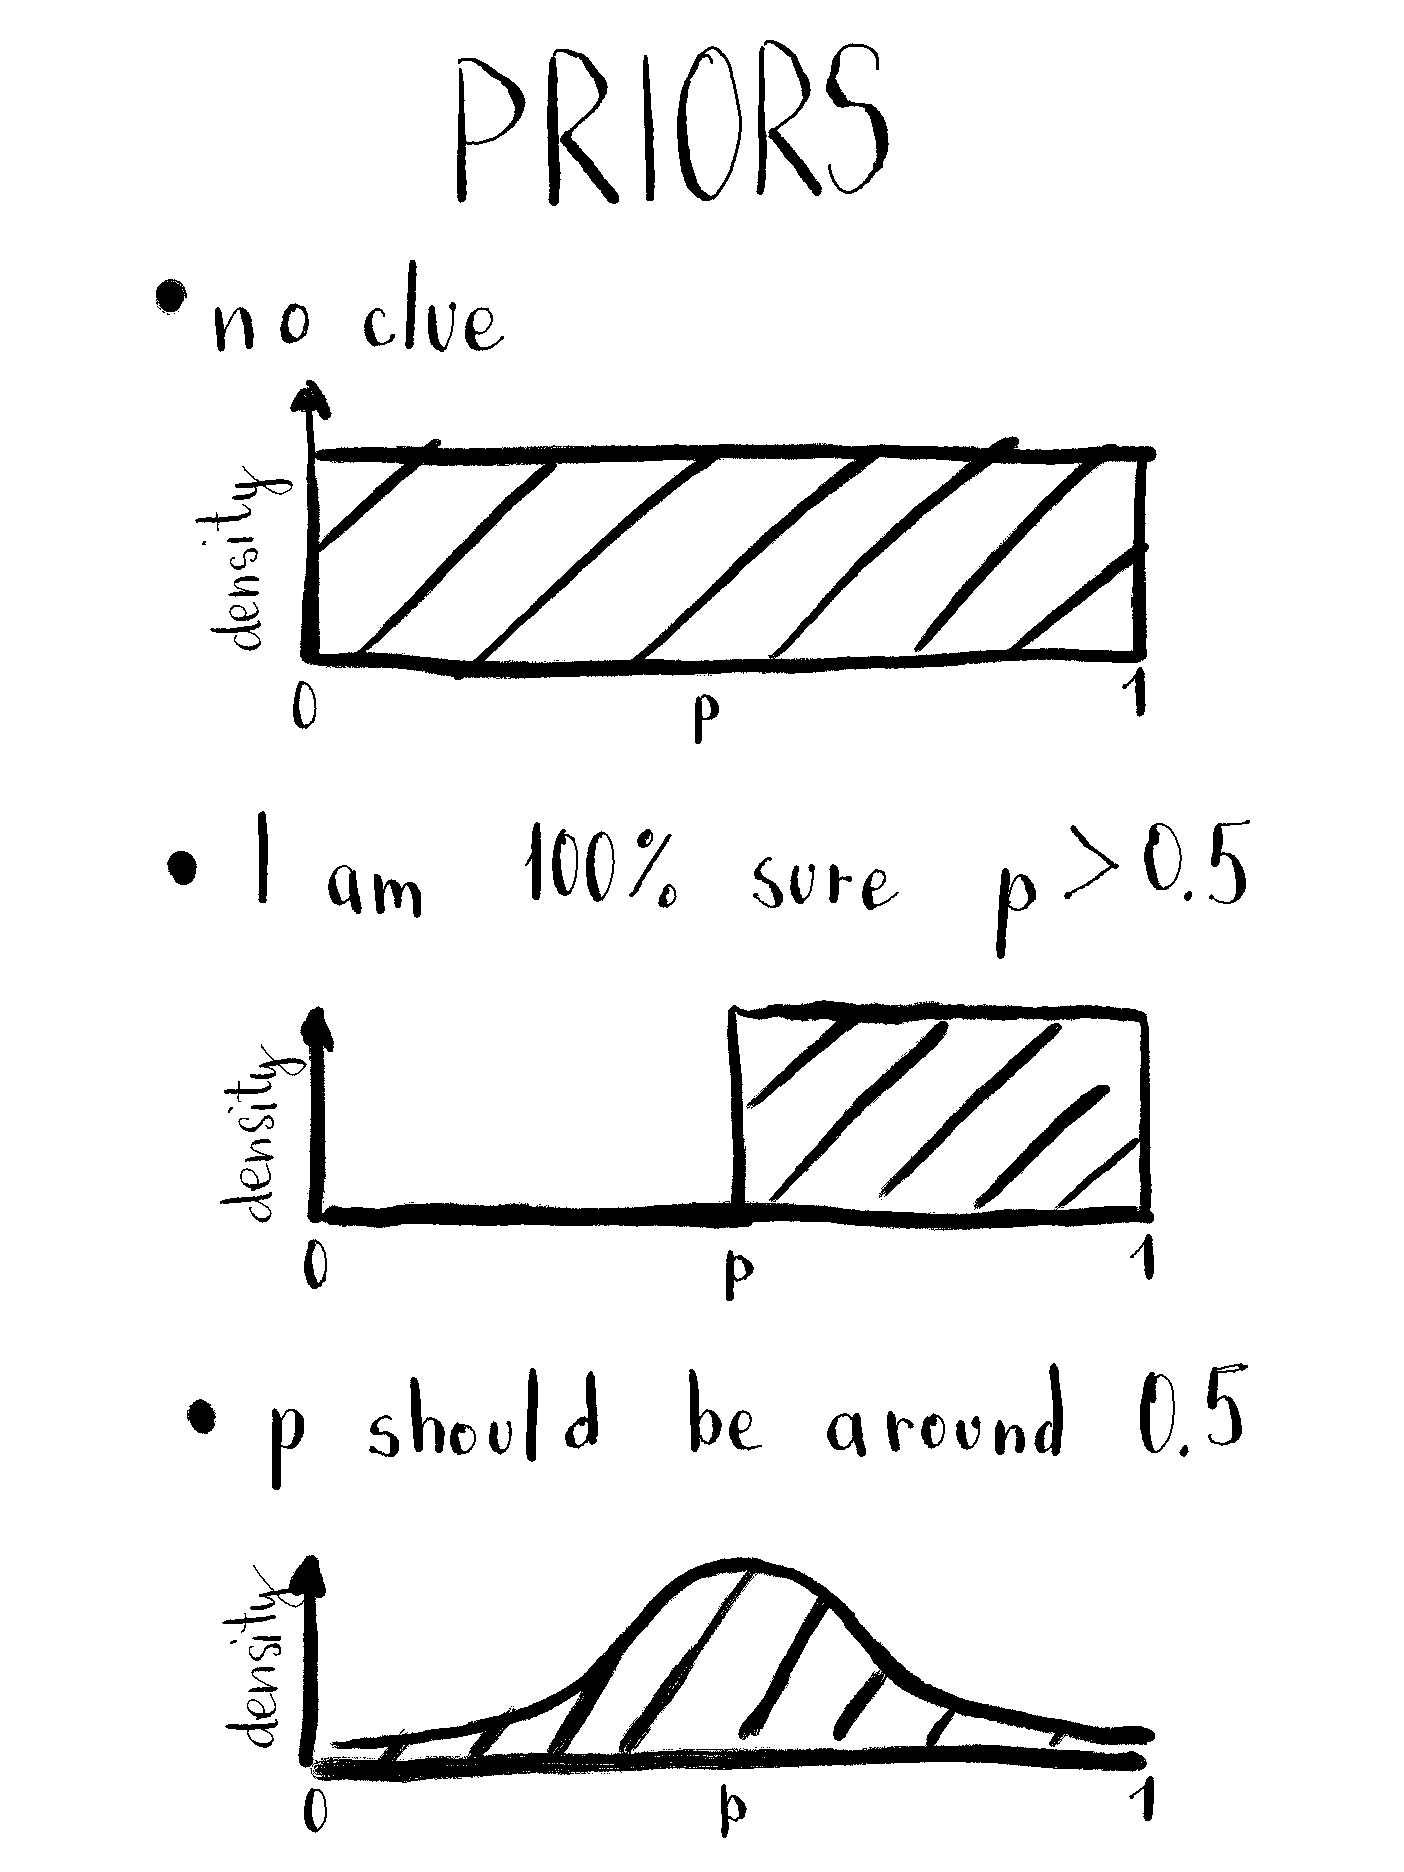 PRIORS
• no clue
density
0 p 1
• I am 100% sure p > 0.5
density
0 p 1
• p should be around 0.5
density
0 p 1